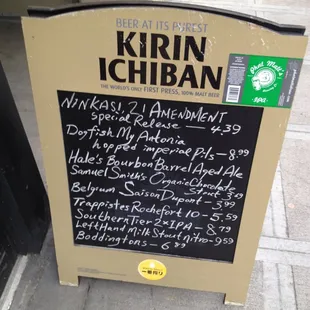 BEER AT ITS PUREST
KIRIN
ICHIBAN
THE WORLD'S ONLY FIRST PRESS, 100% MALT BEER
Phat Matt's
NINKASI, 21 AMENDMENT
special Release — 4.39
Dogfish My Antonia
hopped imperial Pils - 8.99
Hale's Bourbon Barrel Aged Ale
Samuel Smith's Organic Chocolate
Stout 3.09
Belgium Saison Dupont - 3.99
Trappistes Rochefort 10 - 5.59
Southern Tier 2xIPA - 8.79
Left Hand Milk Stout nitro - 9.59
Boddingtons - 6.89
一番搾り